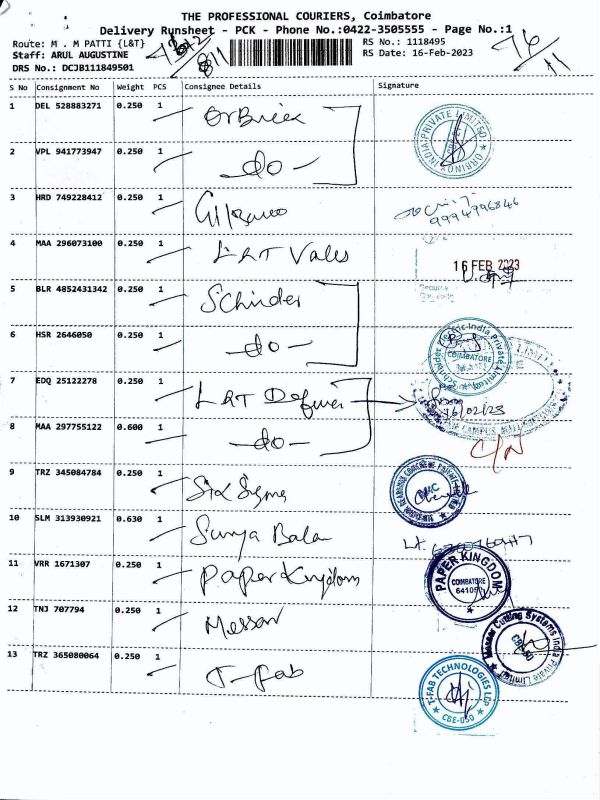 THE PROFESSIONAL COURIERS, Coimbatore
Delivery Runsheet - PCK - Phone No.:0422-3505555 - Page No.:1
Route: M . M PATTI {L&T}
RS No.: 1118495
Staff: ARUL AUGUSTINE
RS Date: 16-Feb-2023
DRS No.: DCJB111849501
S No Consignment No Weight PCS Consignee Details Signature
1 DEL 528883271 0.250 1
ORBINOX INDIA PRIVATE LIMITED
2 VPL 941773947 0.250 1 - do -
3 HRD 749228412 0.250 1
9994996846
4 MAA 296073100 0.250 1 L&T Valves
16 FEB 2023
5 BLR 4852431342 0.250 1
6 HSR 2646050 0.250 1 - do -
COIMBATORE
7 EDQ 25122278 0.250 1 L&T
16/02/23
8 MAA 297755122 0.600 1 - do -
9 TRZ 345084784 0.250 1 Six Sigma
10 SLM 313930921 0.630 1 Surya Bala
11 VRR 1671307 0.250 1 Paper Kingdom
PAPER KINGDOM
COIMBATORE
12 TNJ 707794 0.250 1 Messer
Messer Cutting Systems India Private Limited
13 TRZ 365080064 0.250 1 T-Fab
T-FAB TECHNOLOGIES LLP
CBE-050